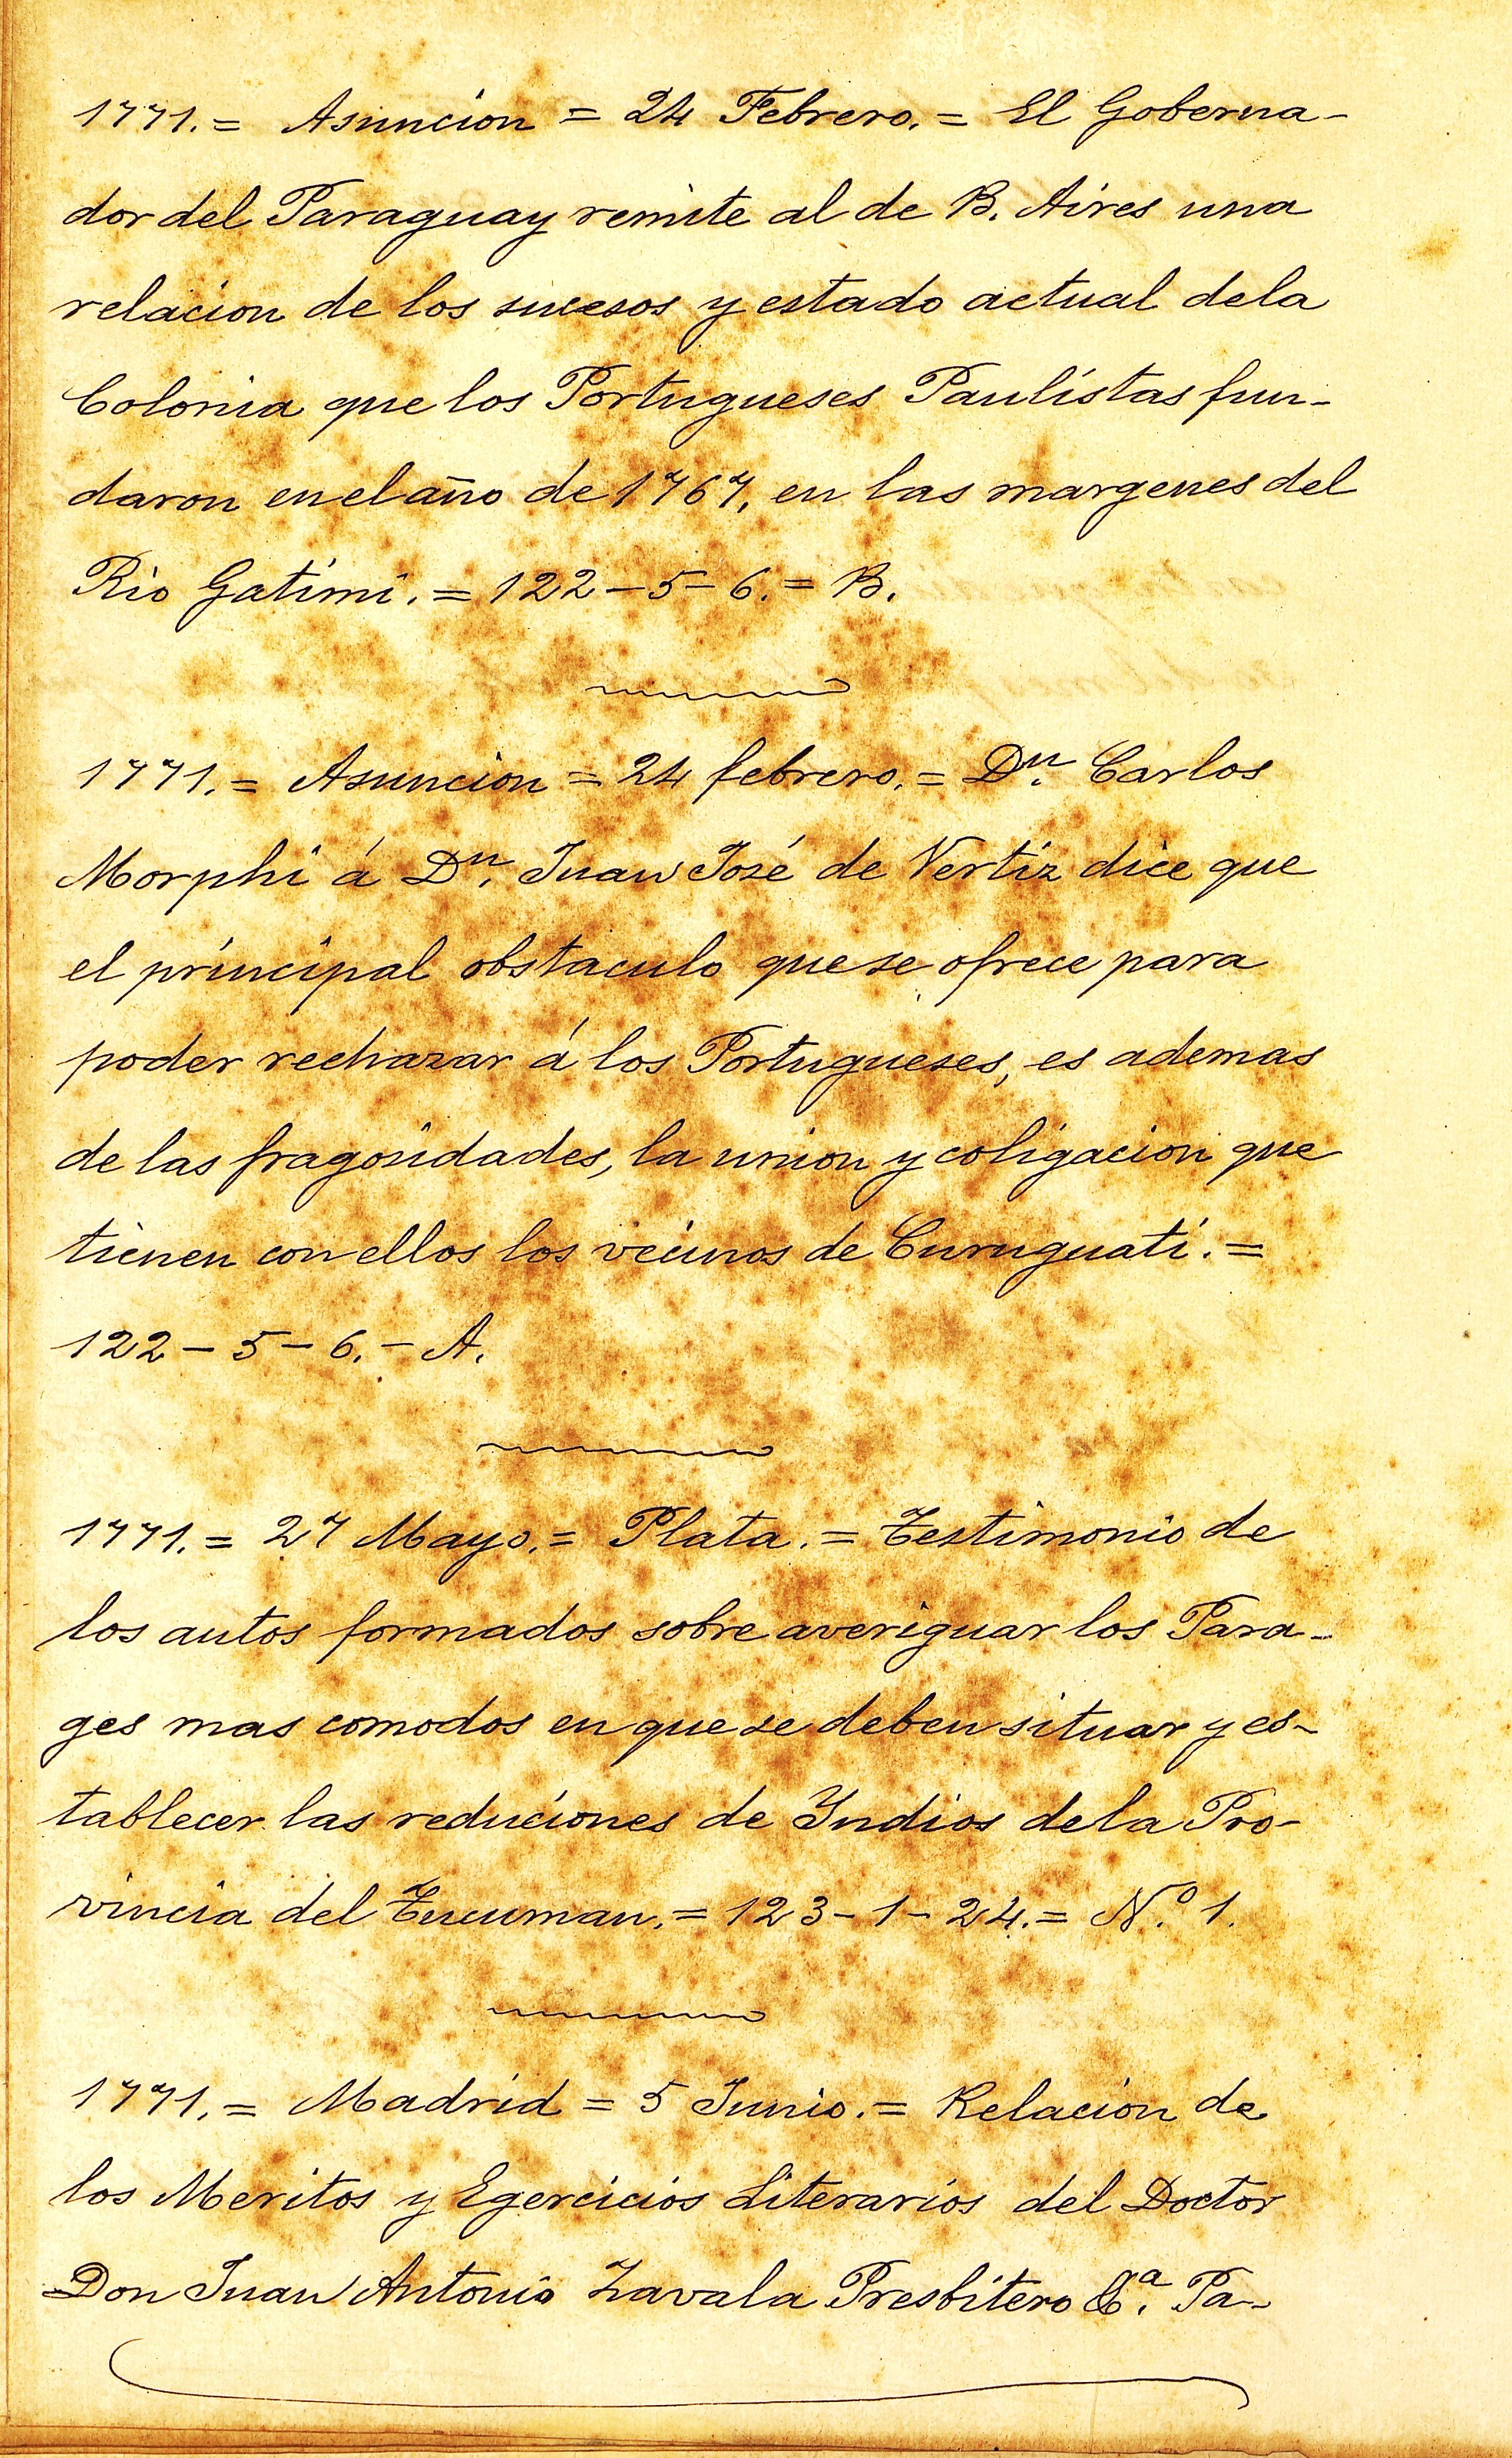 1771. = Asuncion = 24 Febrero. = El Goberna-
dor del Paraguay remite al de B. Aires una
relacion de los sucesos y estado actual dela
Colonia que los Portugueses Paulistas fun-
daron en el año de 1767, en las margenes del
Rio Gatimi. = 122-5-6. = B.
1771. = Asuncion = 24 febrero. = Dn. Carlos
Morphi á Dn. Juan José de Vertiz dice que
el principal obstaculo que se ofrece para
poder rechazar á los Portugueses, es ademas
de las fragosidades, la union y coligacion que
tienen con ellos los vecinos de Curuguati. =
122-5-6.- A.
1771. = 27 Mayo. = Plata. = Testimonio de
los autos formados sobre averiguar los Para-
ges mas comodos en que se deben situar y es-
tablecer las reduciones de Indios dela Pro-
vincia del Tucuman. = 123-1-24. = N.º 1.
1771. = Madrid = 5 Junio. = Relacion de
los Meritos y Egercicios Literarios del Doctor
Don Juan Antonio Zavala Presbitero &ª. Pa-